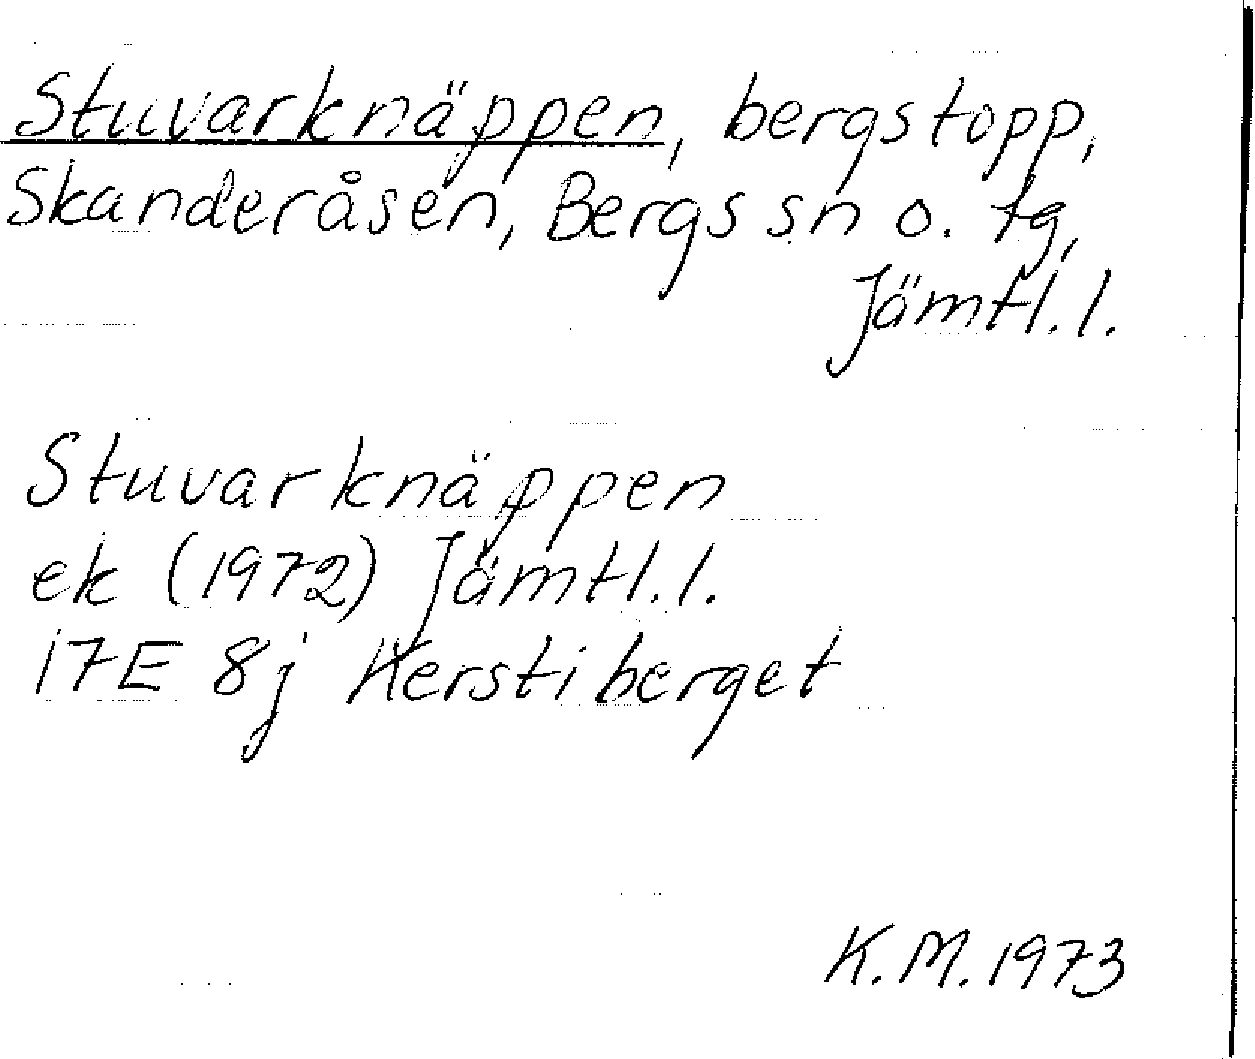 Stuvarknäppen, bergstopp,
Skanderåsen, Bergs sn o. tg,
Jämtl. l.
Stuvarknäppen
ek (1972) Jämtl. l.
17E 8j Kerstiberget
K. M. 1973